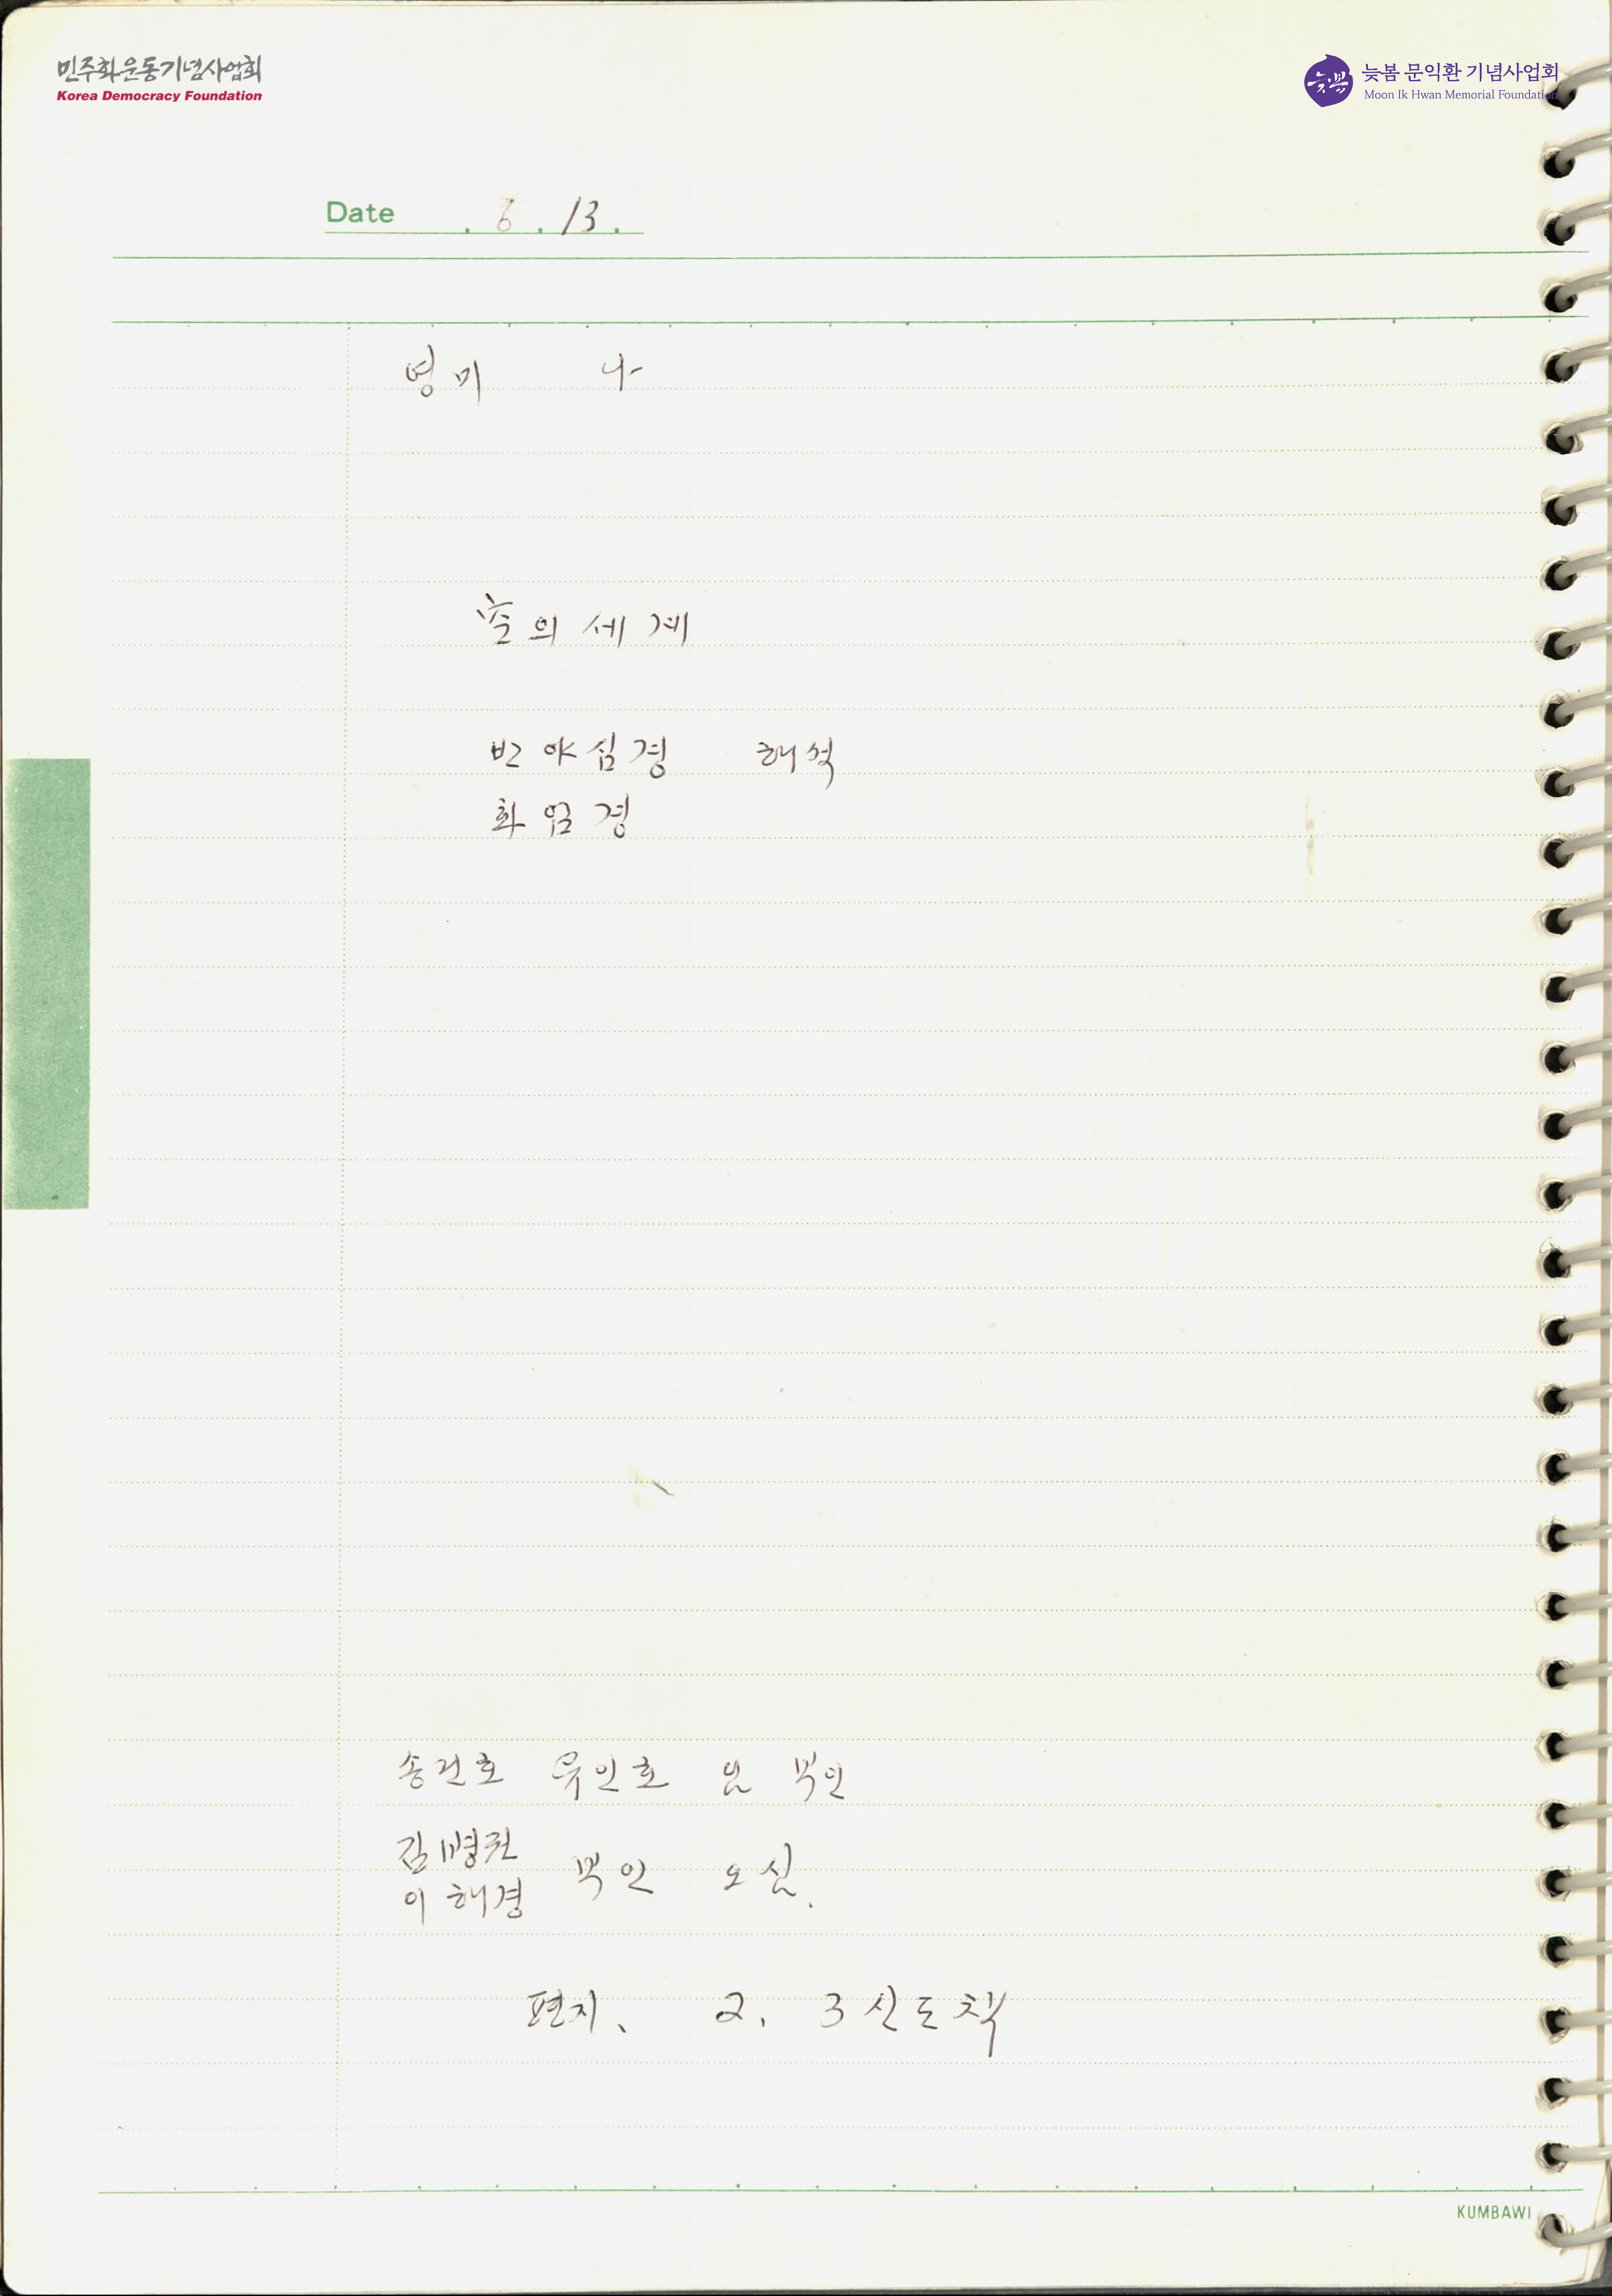 민주화운동기념사업회
Korea Democracy Foundation
늦봄 문익환 기념사업회
Moon Ik Hwan Memorial Foundation
늦봄
Date . 6 . 13 .
영미 나
의 세계
반야심경 해석
화엄경
송건호 유인호 부인
김병걸
이해경 부인 오심.
편지、 2. 3 신도책
KUMBAWI